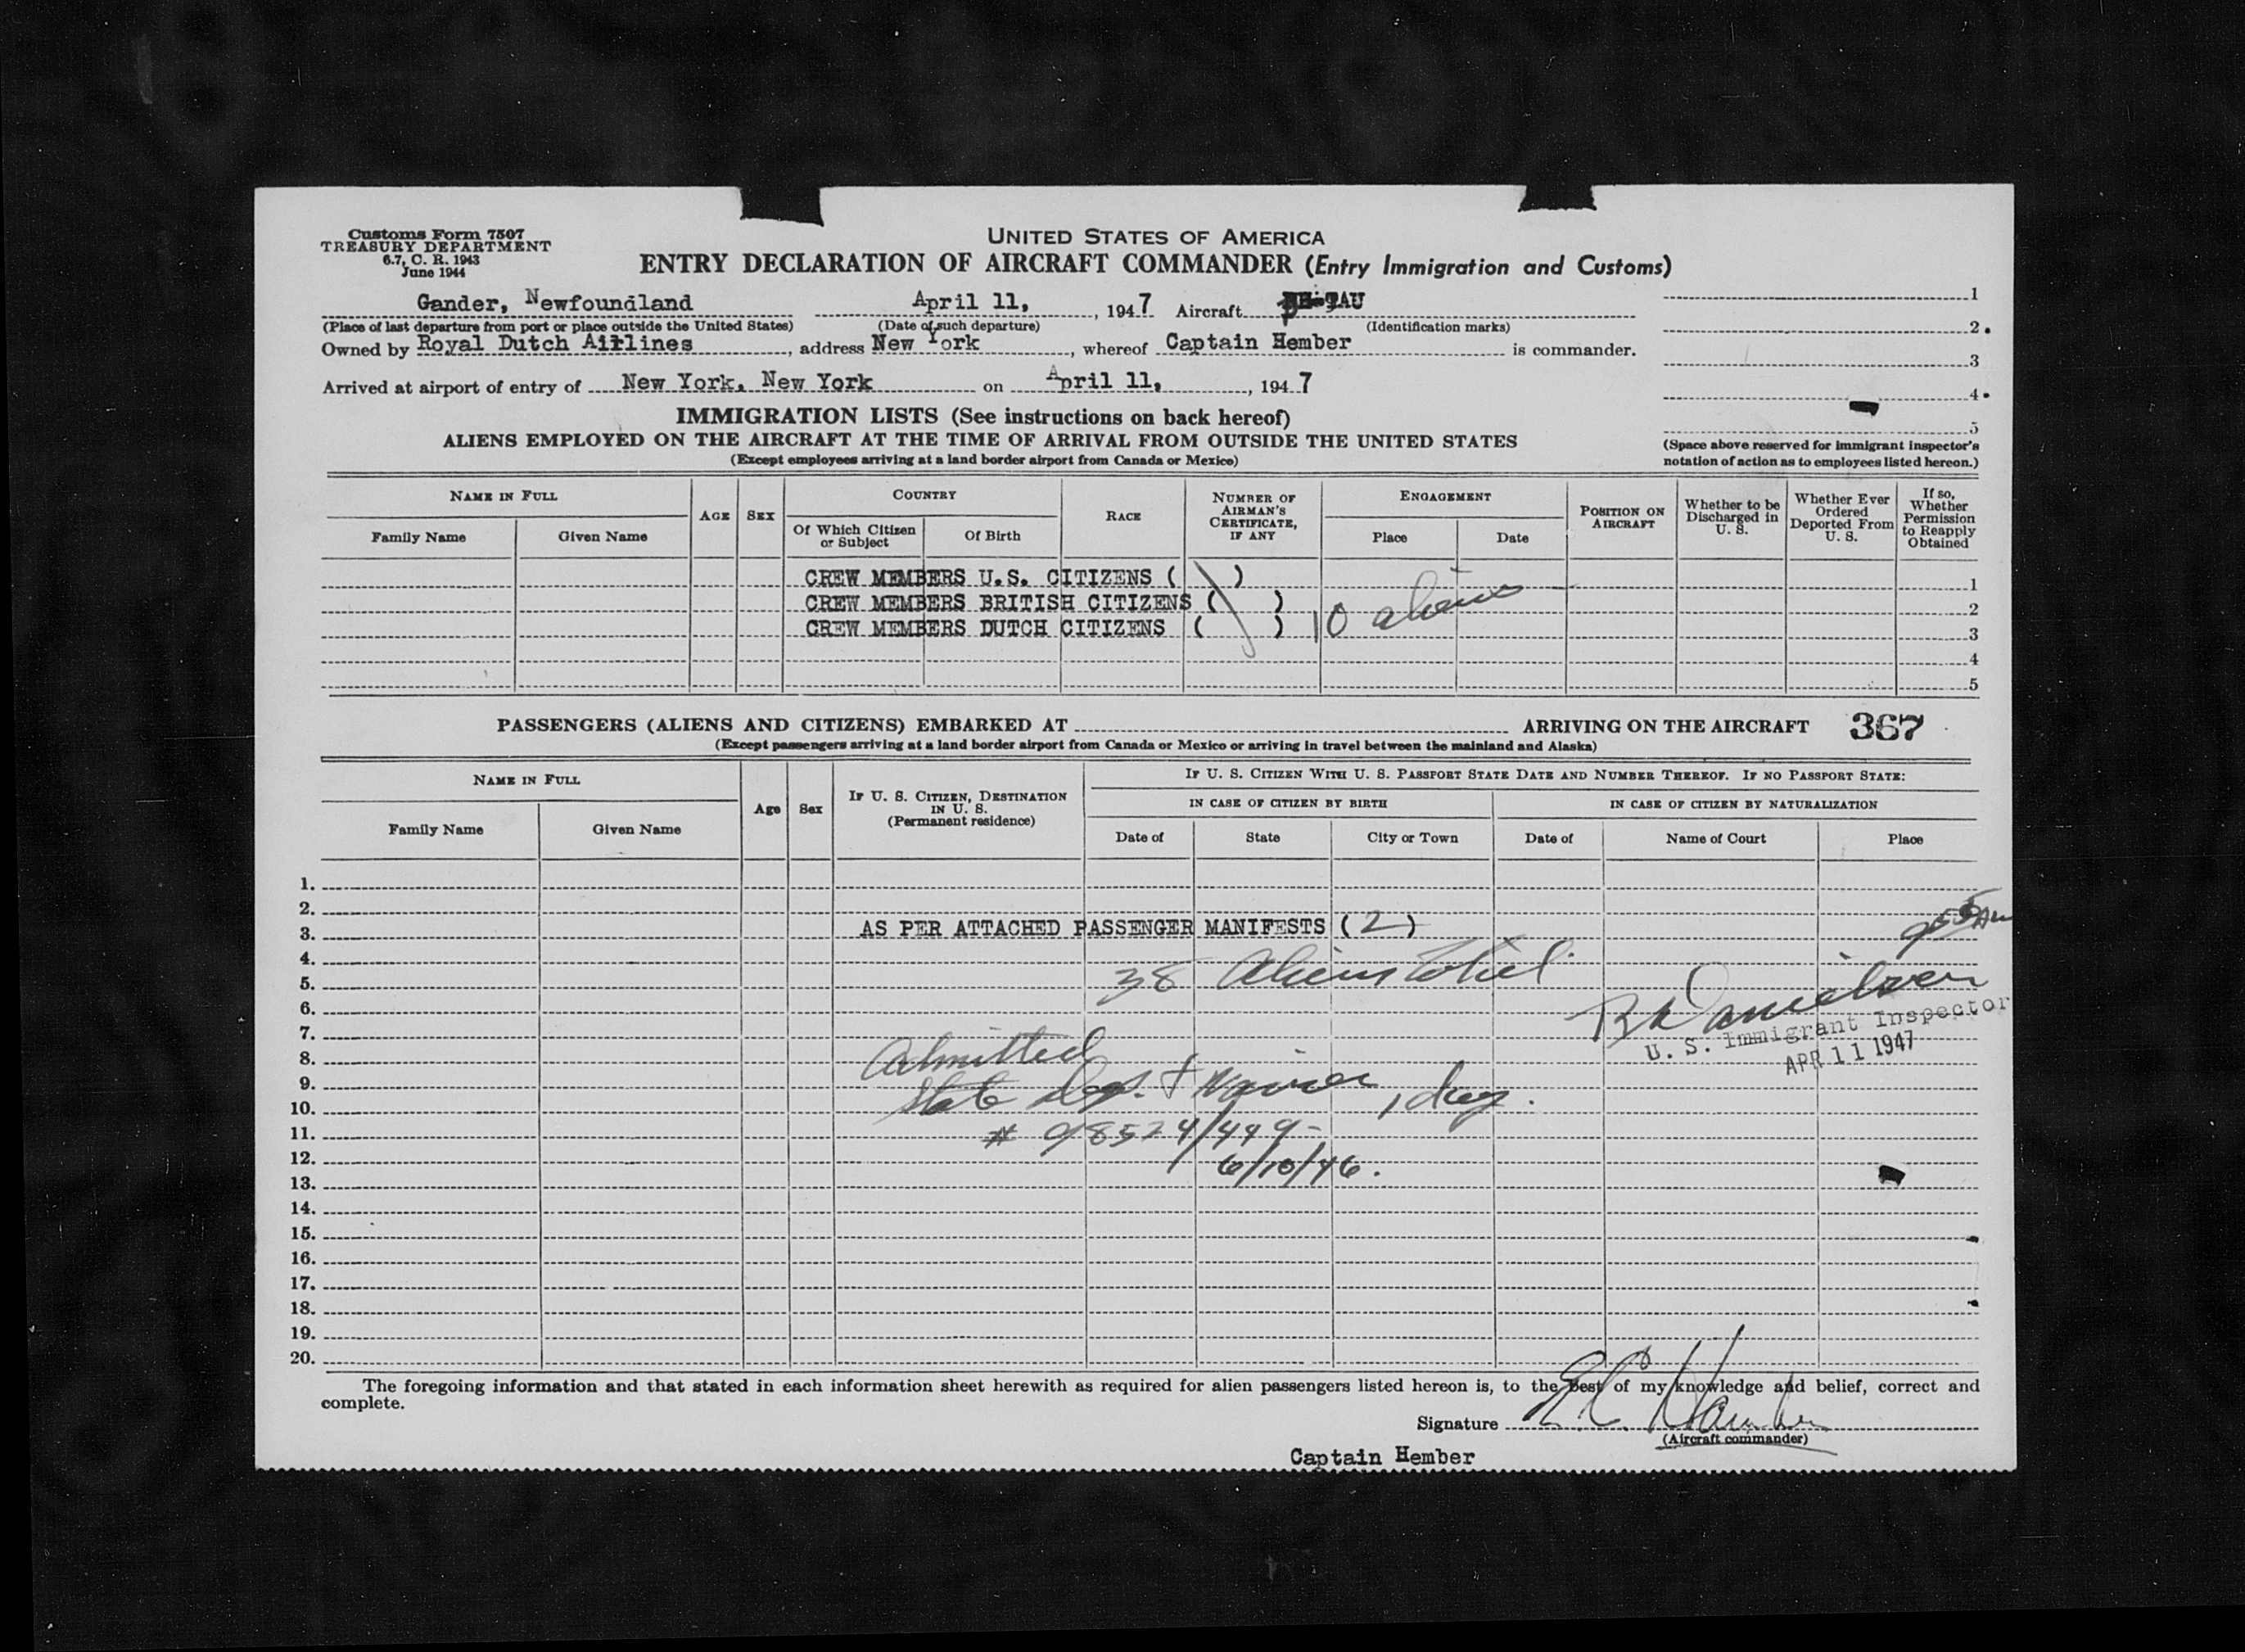 Customs Form 7507
TREASURY DEPARTMENT
6.7, C. R. 1943
June 1944
UNITED STATES OF AMERICA
ENTRY DECLARATION OF AIRCRAFT COMMANDER (Entry Immigration and Customs)
Gander, Newfoundland April 11, , 1947 Aircraft TAU
(Place of last departure from port or place outside the United States) (Date of such departure) (Identification marks)
Owned by Royal Dutch Airlines , address New York , whereof Captain Hember is commander.
Arrived at airport of entry of New York, New York on April 11, , 1947
1
2.
3
4.
5
(Space above reserved for immigrant inspector's
notation of action as to employees listed hereon.)
IMMIGRATION LISTS (See instructions on back hereof)
ALIENS EMPLOYED ON THE AIRCRAFT AT THE TIME OF ARRIVAL FROM OUTSIDE THE UNITED STATES
(Except employees arriving at a land border airport from Canada or Mexico)
NAME IN FULL
Family Name Given Name
AGE
SEX
COUNTRY
Of Which Citizen or Subject
Of Birth
RACE
NUMBER OF AIRMAN'S CERTIFICATE, IF ANY
ENGAGEMENT
Place Date
POSITION ON AIRCRAFT
Whether to be Discharged in U. S.
Whether Ever Ordered Deported From U. S.
If so, Whether Permission to Reapply Obtained
CREW MEMBERS U.S. CITIZENS ( ) 1
CREW MEMBERS BRITISH CITIZENS ( ) 2
CREW MEMBERS DUTCH CITIZENS ( ) 10 aliens 3
4
5
PASSENGERS (ALIENS AND CITIZENS) EMBARKED AT ARRIVING ON THE AIRCRAFT 367
(Except passengers arriving at a land border airport from Canada or Mexico or arriving in travel between the mainland and Alaska)
NAME IN FULL
Family Name Given Name
Age
Sex
IF U. S. CITIZEN, DESTINATION IN U. S.
(Permanent residence)
IF U. S. CITIZEN WITH U. S. PASSPORT STATE DATE AND NUMBER THEREOF. IF NO PASSPORT STATE:
IN CASE OF CITIZEN BY BIRTH IN CASE OF CITIZEN BY NATURALIZATION
Date of State City or Town Date of Name of Court Place
1.
2.
3. AS PER ATTACHED PASSENGER MANIFESTS (2) 955 AM
4.
5. 38 Aliens total
6. Danielsen
7. U. S. Immigrant Inspector
8. Admitted APR 11 1947
9. State Dept. &
10.
11. # 98524/449-
12. 6/10/46.
13.
14.
15.
16.
17.
18.
19.
20.
The foregoing information and that stated in each information sheet herewith as required for alien passengers listed hereon is, to the best of my knowledge and belief, correct and
complete.
Signature
(Aircraft commander)
Captain Hember